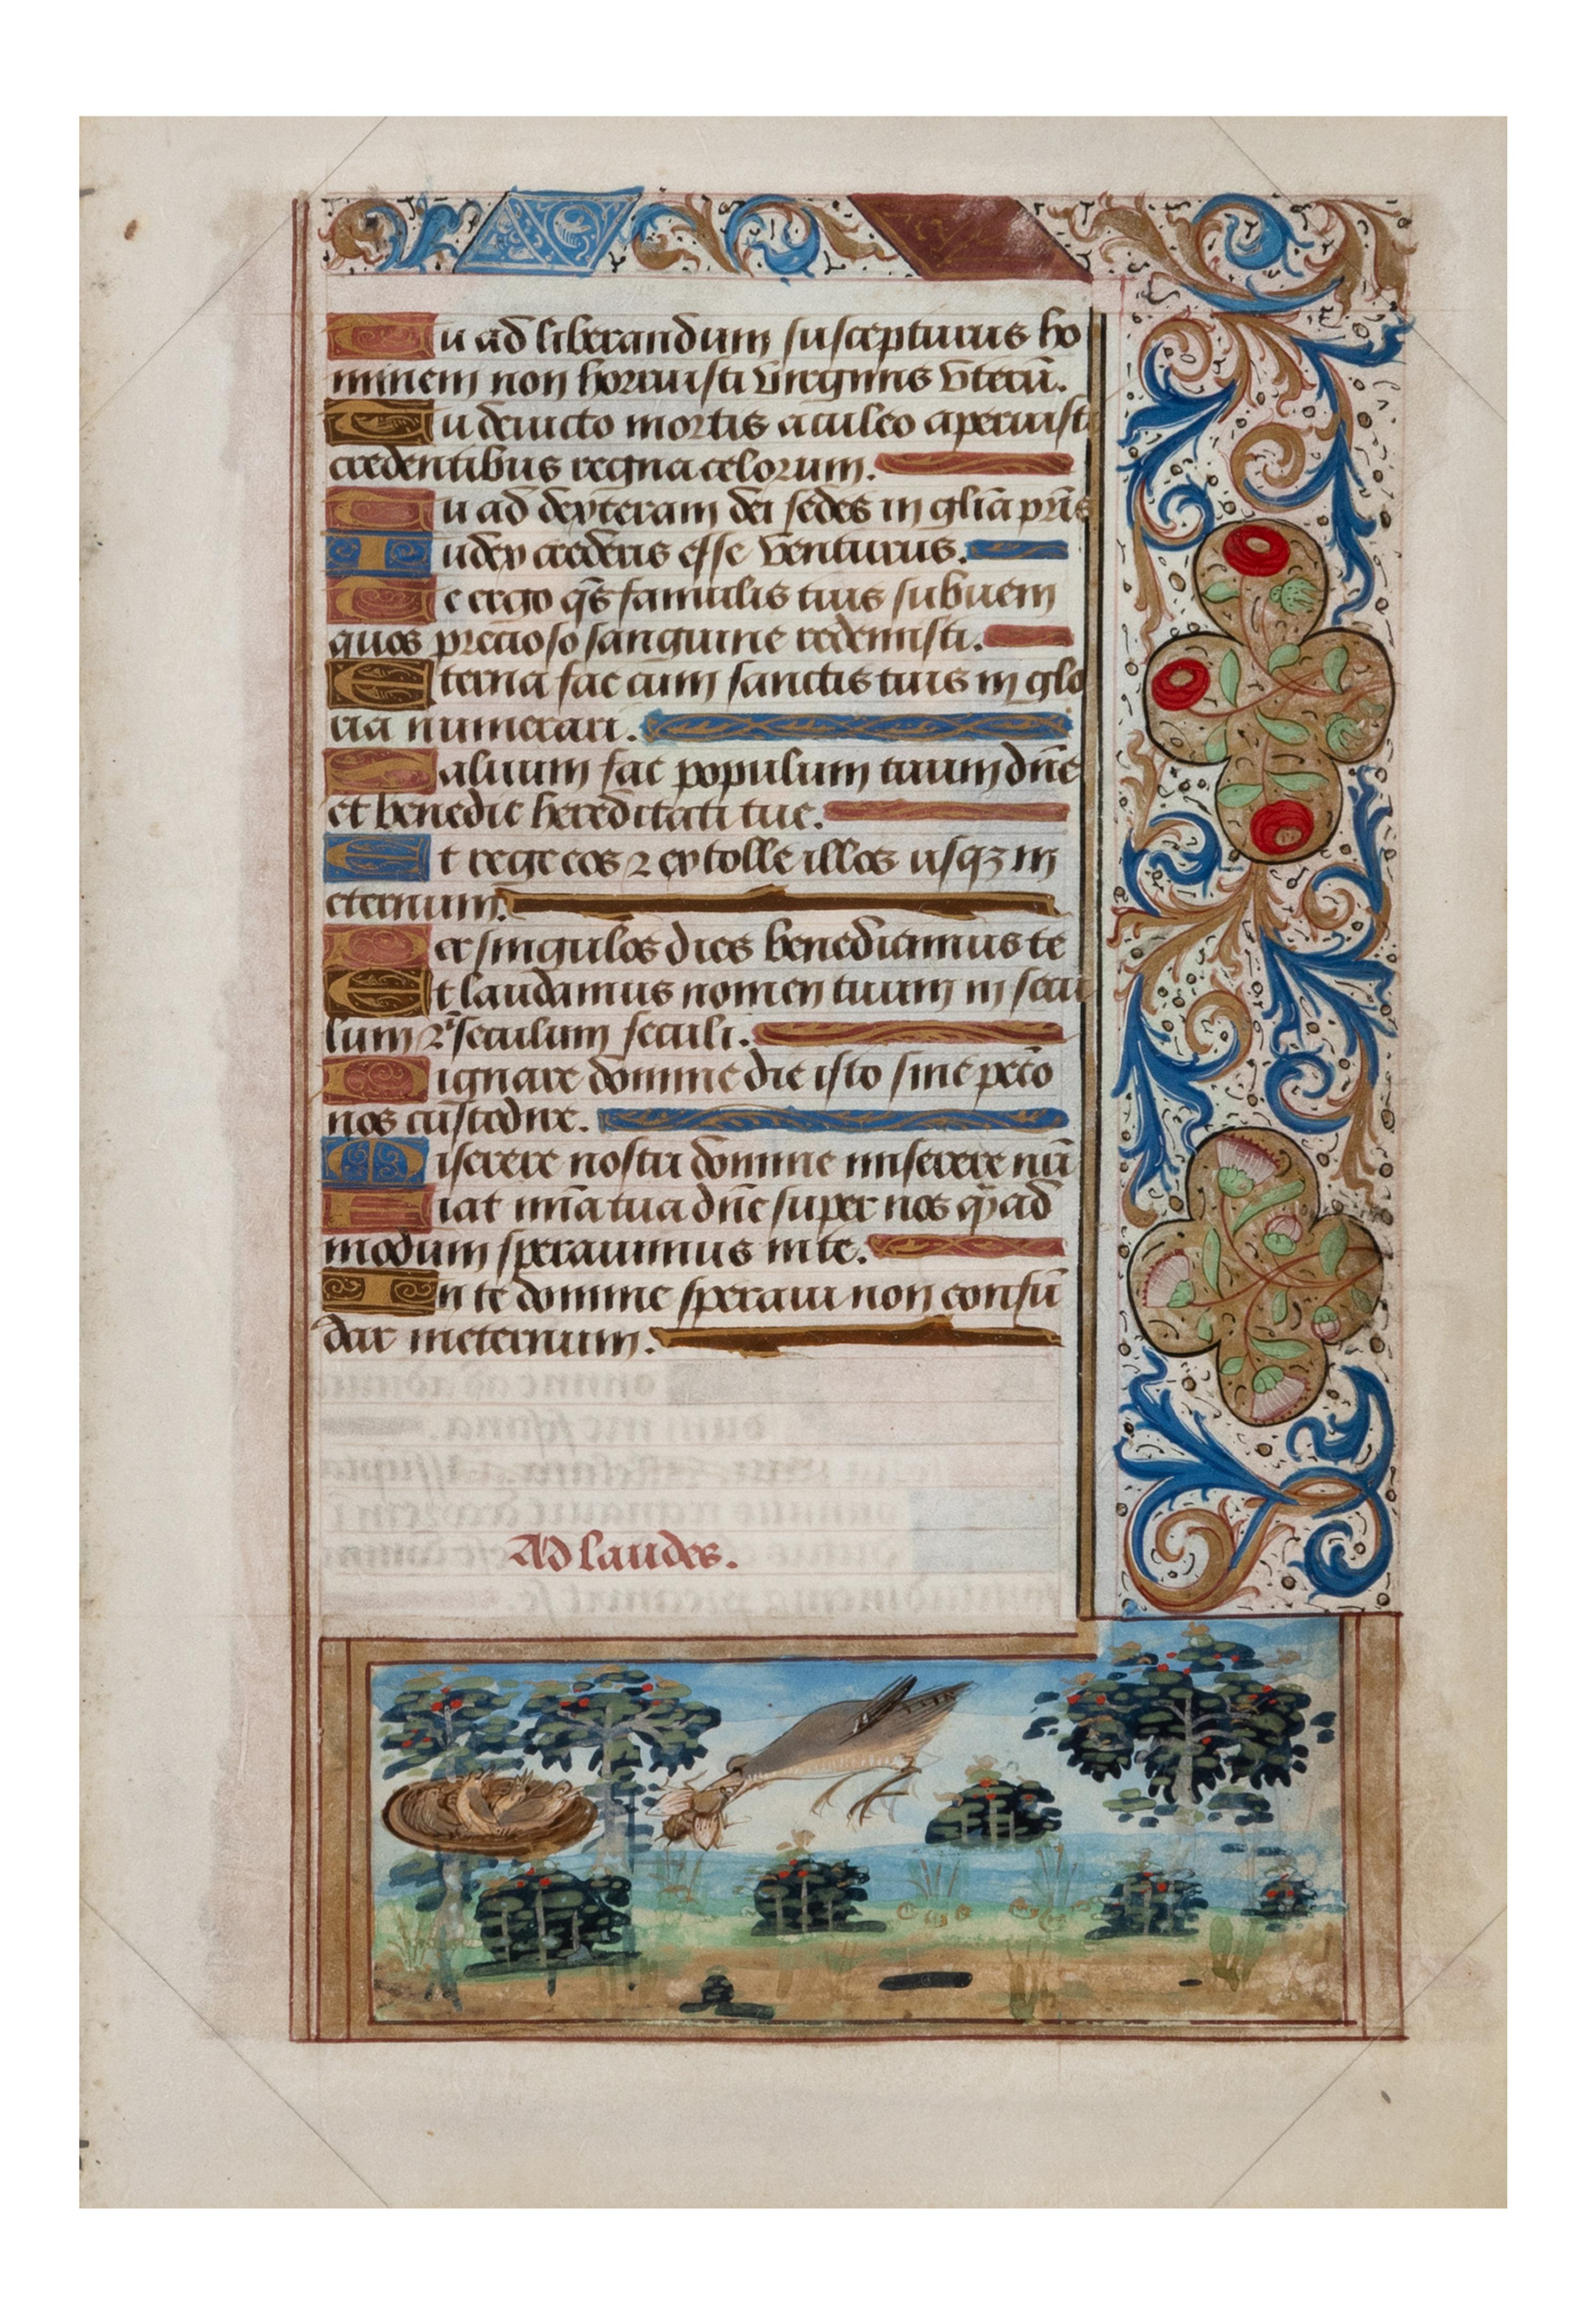 Tu ad liberandum suscepturus ho
minem non horruisti virginis vterū.
Tu deuicto mortis aculeo aperuisti
credentibus regna celorum.
Tu ad dexteram dei sedes in glīa pr̄is
Iudex crederis esse venturus.
Te ergo qs̄ famulis tuis subueni
quos precioso sanguine redemisti.
Eterna fac cum sanctis tuis in glo
ria numerari.
Saluum fac populum tuum dn̄e
et benedic hereditati tue.
Et rege eos ⁊ extolle illos usqꝫ in
eternum.
Per singulos dies benedicimus te
Et laudamus nomen tuum in secu
lum ⁊ seculum seculi.
Dignare domine die isto sine pctō
nos custodire.
Miserere nostri domine miserere nr̄i
Fiat mīa tua dn̄e super nos q̄ad
modum sperauimus in te.
In te domine speraui non confū
dar in eternum.
Ad laudes.